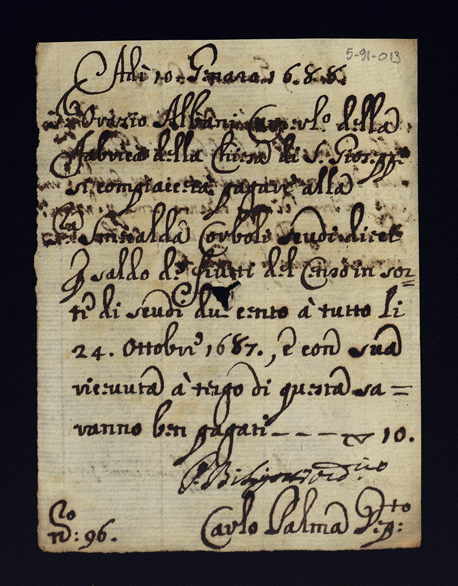 5-91-013
Adi 10. Genaro 1688.
Orazio Albani della
Fabrica della Chiesa di S. Giorgo
si compiacerà pagare alla
Smiralda Corboli scudi dieci
saldo de frutti del Censo in sor=
te di scudi ducento à tutto li
24. Ottobre 1687., e con sua
ricevuta à tergo di questa sa=
ranno ben pagati - - - 10.
Carlo Palma
No: 96.